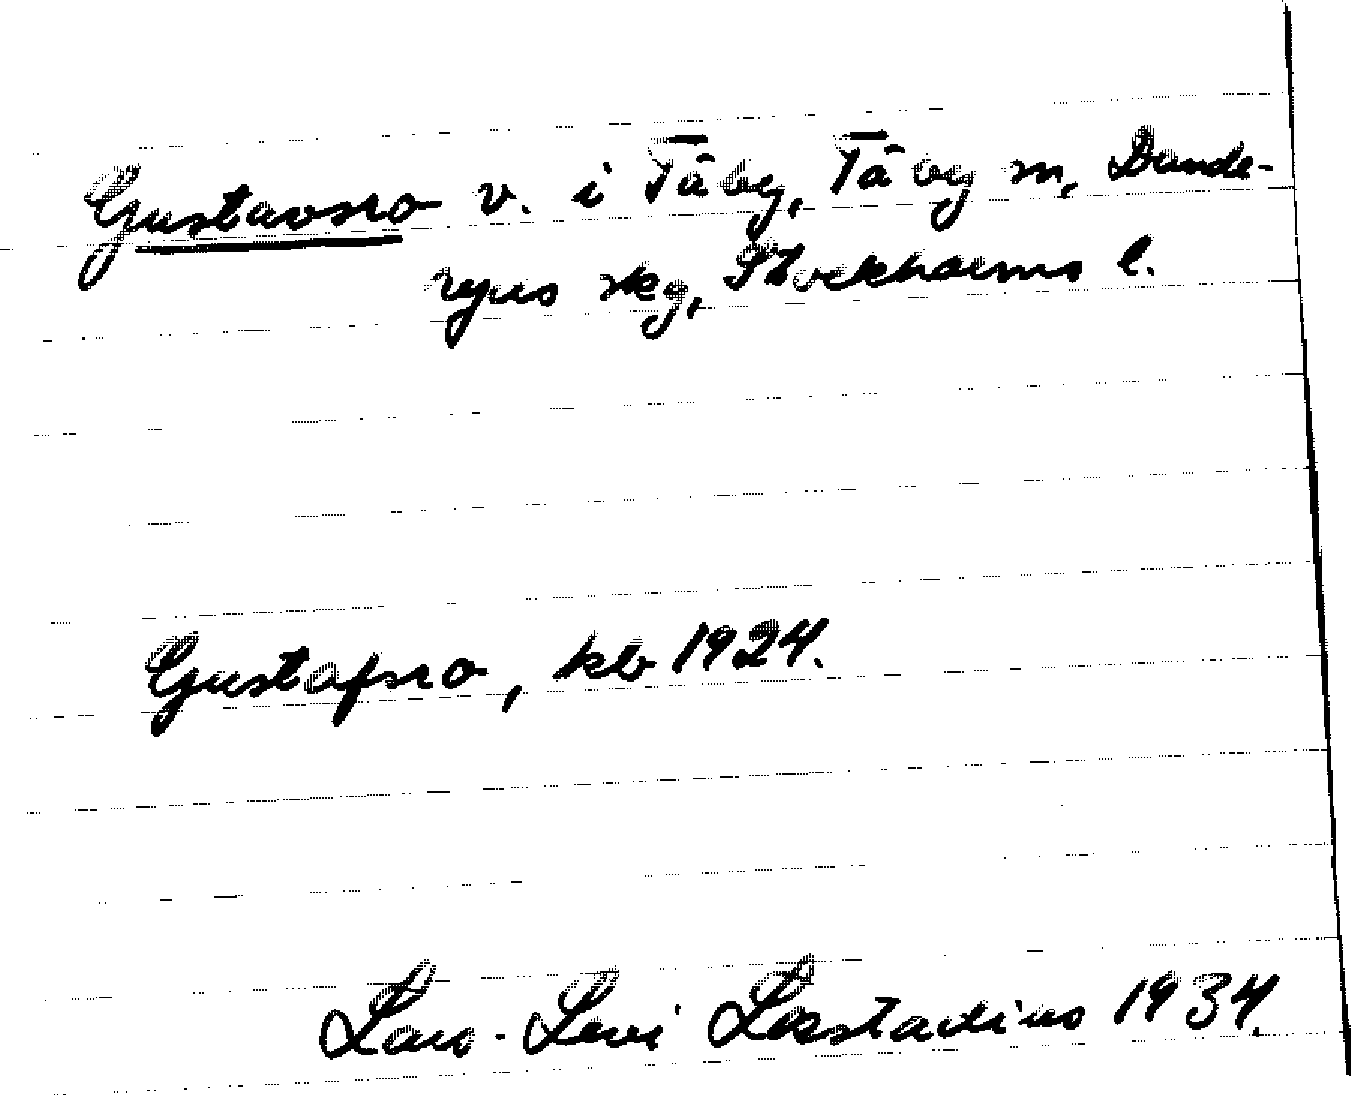 Gustavsro v. i Täby, Täby sn, Dande-
ryds skg, Stockholms l.
Gustafsro, kb 1924.
Lars-Levi Læstadius 1934.